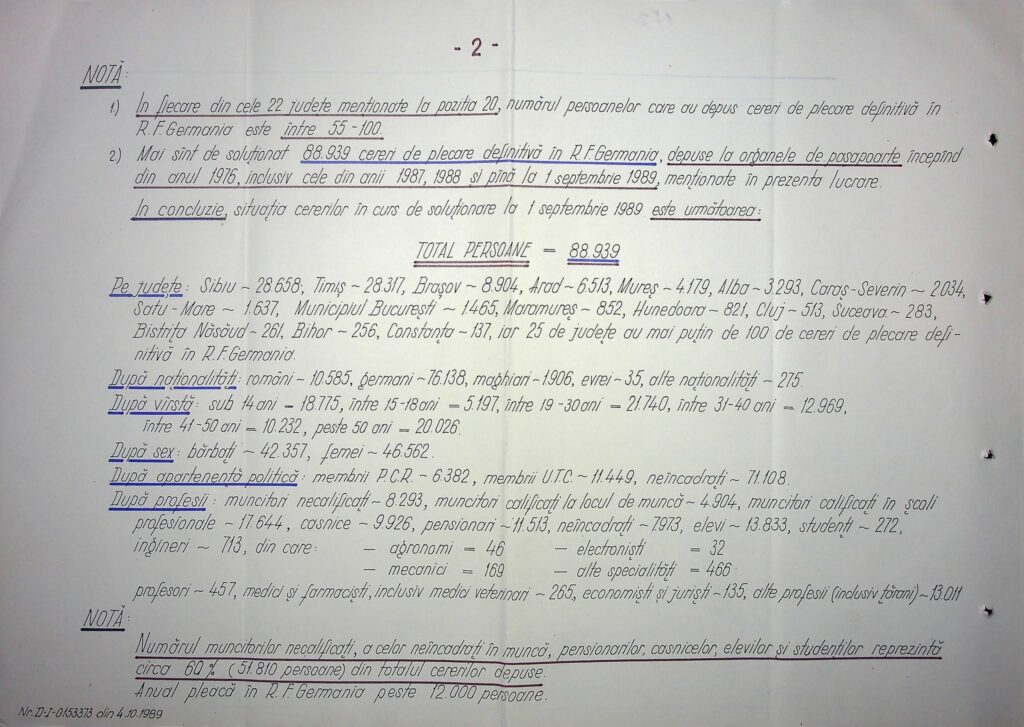 - 2 -
NOTĂ:
1.) În fiecare din cele 22 județe menționate la poziția 20, numărul persoanelor care au depus cereri de plecare definitivă în
R.F.Germania este între 55-100.
2.) Mai sînt de soluționat 88.939 cereri de plecare definitivă în R.F.Germania, depuse la organele de pașapoarte începînd
din anul 1976, inclusiv cele din anii 1987, 1988 și pînă la 1 septembrie 1989, menționate în prezenta lucrare.
În concluzie, situația cererilor în curs de soluționare la 1 septembrie 1989 este următoarea:
TOTAL PERSOANE = 88.939
Pe județe: Sibiu ~ 28.658, Timiș ~ 28.317, Brașov ~ 8.904, Arad ~ 6.513, Mureș ~ 4.179, Alba ~ 3.293, Caraș-Severin ~ 2.034,
Satu-Mare ~ 1.637, Municipiul București ~ 1.465, Maramureș ~ 852, Hunedoara ~ 821, Cluj ~ 513, Suceava ~ 283,
Bistrița Năsăud ~ 261, Bihor ~ 256, Constanța ~ 137, iar 25 de județe au mai puțin de 100 de cereri de plecare defi-
nitivă în R.F.Germania.
După naționalități: români ~ 10.585, germani ~ 76.138, maghiari ~ 1.906, evrei ~ 35, alte naționalități ~ 275.
După vîrstă: sub 14 ani = 18.775, între 15-18 ani = 5.197, între 19-30 ani = 21.740, între 31-40 ani = 12.969,
între 41-50 ani = 10.232, peste 50 ani = 20.026.
După sex: bărbați ~ 42.357, femei ~ 46.562.
După apartenență politică: membrii P.C.R. ~ 6.382, membrii U.T.C. ~ 11.449, neîncadrați ~ 71.108.
După profesii: muncitori necalificați ~ 8.293, muncitori calificați la locul de muncă ~ 4.904, muncitori calificați în școli
profesionale ~ 17.644, casnice ~ 9.926, pensionari ~ 11.513, neîncadrați ~ 7.973, elevi ~ 13.833, studenți ~ 272,
ingineri ~ 713, din care: — agronomi = 46 — electroniști = 32
— mecanici = 169 — alte specialități = 466
profesori ~ 457, medici și farmaciști, inclusiv medici veterinari ~ 265, economiști și juriști ~ 135, alte profesii (inclusiv țărani) ~ 13.011
NOTĂ:
Numărul muncitorilor necalificați, a celor neîncadrați în muncă, pensionarilor, casnicelor, elevilor și studenților reprezintă
circa 60% (51.810 persoane) din totalul cererilor depuse.
Anual pleacă în R.F.Germania peste 12.000 persoane.
Nr. D-I-0153373 din 4.10.1989